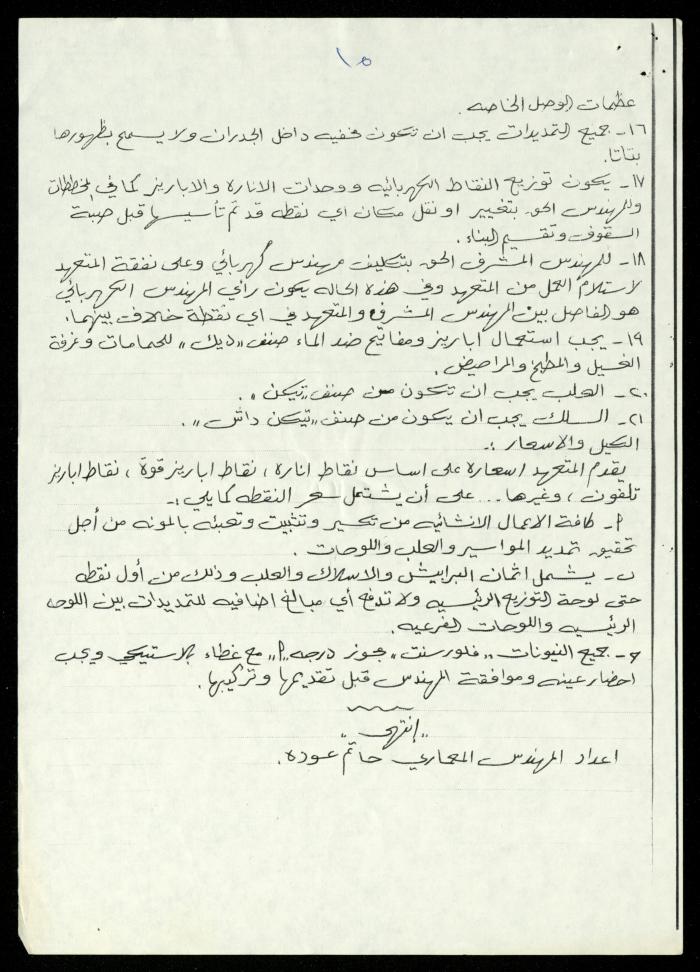 ١٥
علامات الوصل الخاصه.
١٦- جميع التمديدات يجب ان تكون مخفيه داخل الجدران ولا يسمح بظهورها
بتاتا.
١٧- يكون توزيع النقاط الكهربائيه ووحدات الانارة والاباريز كما في المخططات
وللمهندس الحق بتغيير او نقل مكان اي نقطه قد تم تأسيسها قبل صبة
السقوف وتقسيم البناء.
١٨- للمهندس المشرف الحق بتكليف مهندس كهربائي وعلى نفقة المتعهد
لاستلام العمل من المتعهد وفي هذه الحاله يكون رأي المهندس الكهربائي
هو الفاصل بين المهندس المشرف والمتعهد في اي نقطة خلاف بينهما.
١٩- يجب استعمال اباريز ومفاتيح ضد الماء صنف "ديك" للحمامات وغرفة
الغسيل والمطبخ والمراحيض.
٢٠- العلب يجب ان تكون من صنف "تيكن".
٢١- السلك يجب ان يكون من صنف "تيكن داتش".
الكيل والاسعار :-
يقدم المتعهد اسعاره على اساس نقاط انارة، نقاط اباريز قوة، نقاط اباريز
تلفون، وغيرها... على أن يشتمل سعر النقطه كما يلي:-
أ- كافة الاعمال الانشائيه من تكسير وتثبيت وتعبئه بالمونه من أجل
تحقيق تمديد المواسير والعلب واللوحات.
ب- يشمل اثمان البرابيش والاسلاك والعلب وذلك من أول نقطه
حتى لوحة التوزيع الرئيسيه ولا تدفع أي مبالغ اضافيه للتمديدات بين اللوحه
الرئيسيه واللوحات الفرعيه.
جميع النيونات "فلورسنت" جوز درجه "أ" مع غطاء بلاستيكي ويجب
احضار عينه وموافقة المهندس قبل تقديمها وتركيبها.
"إنتهى"
اعداد المهندس المعماري حاتم عوده.